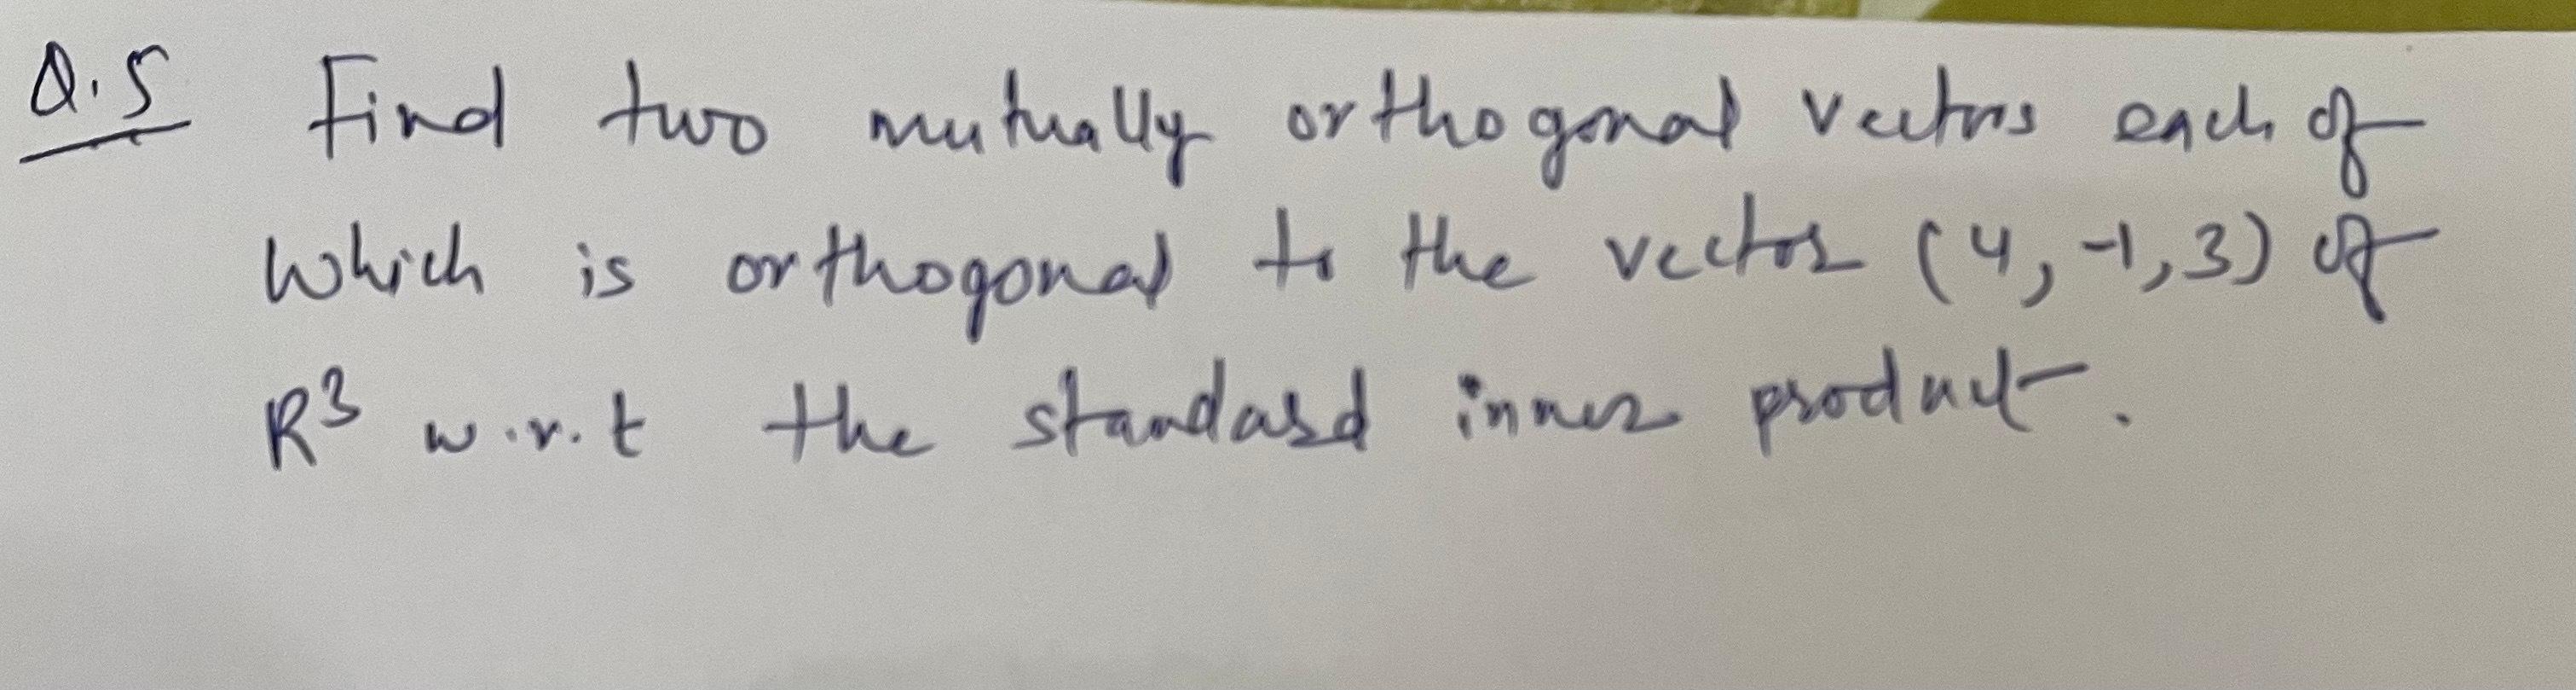 Q.5 Find two mutually orthogonal vectors each of
which is orthogonal to the vector (4, -1, 3) of
R³ w.r.t the standard inner product.